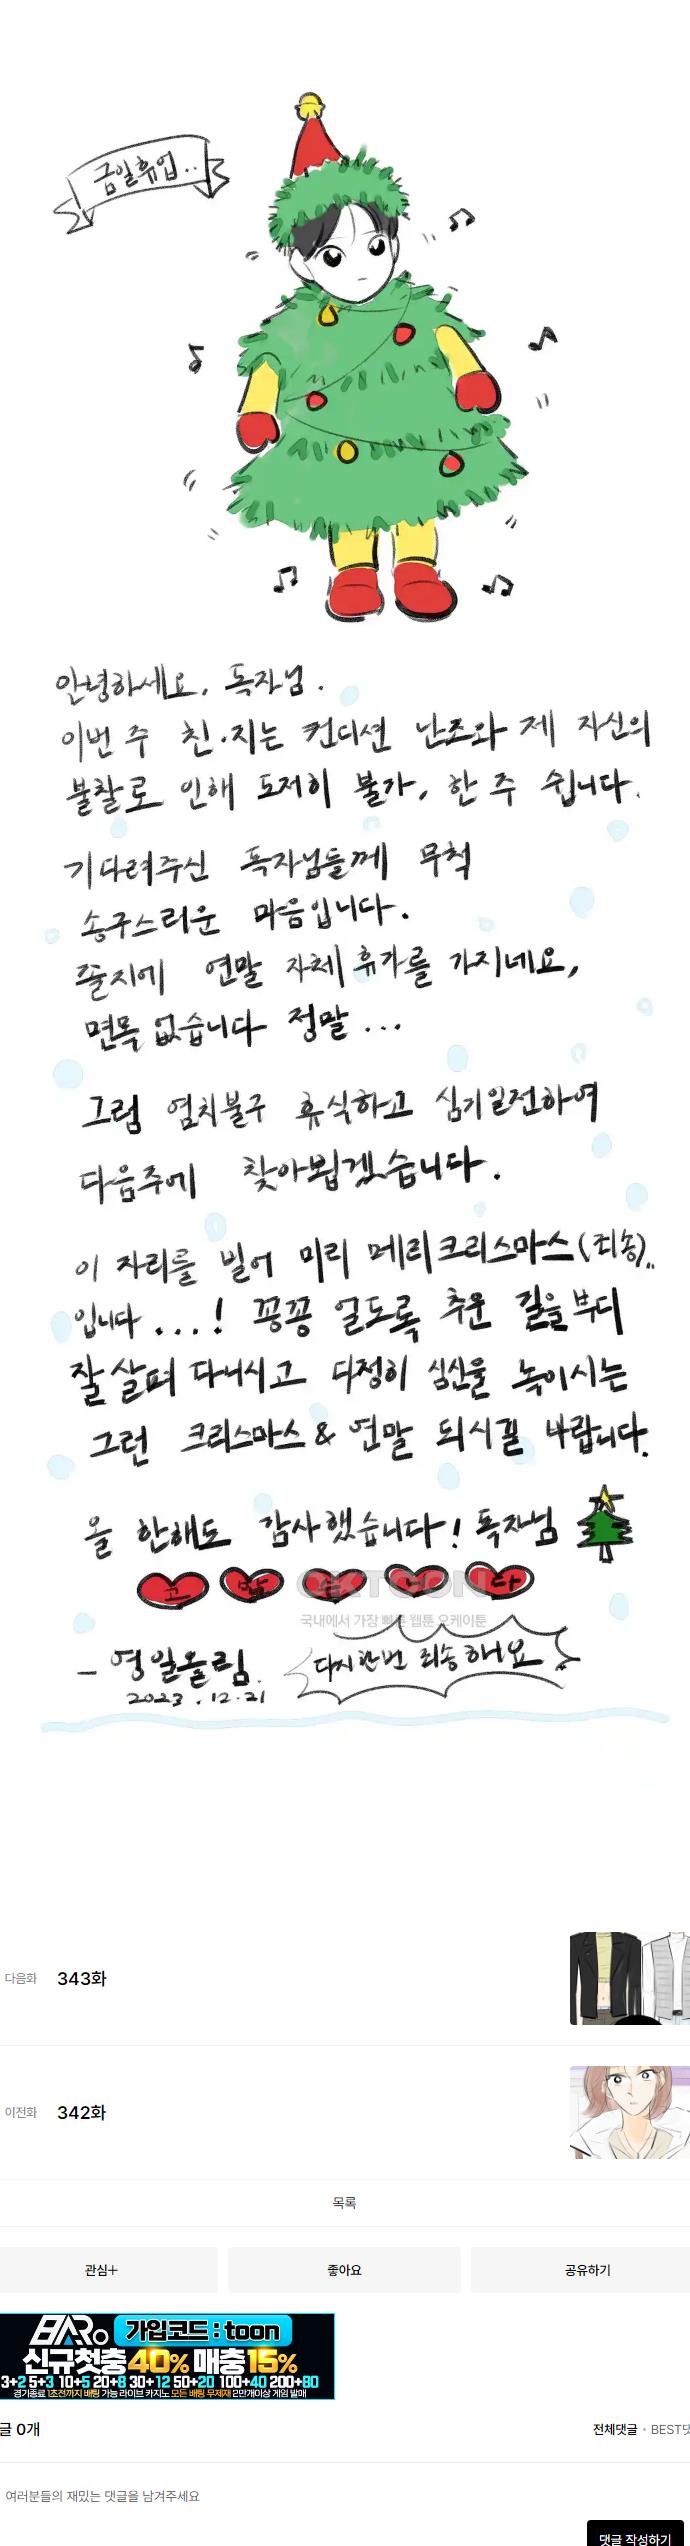 금일휴업..
안녕하세요, 독자님.
이번 주 친.지는 컨디션 난조와 제 자신의
불찰로 인해 도저히 불가, 한 주 쉽니다.
기다려주신 독자님들께 무척
송구스러운 마음입니다.
졸지에 연말 자체 휴가를 가지네요,
면목 없습니다 정말 ...
그럼 염치불구 휴식하고 심기일전하여
다음주에 찾아뵙겠습니다.
이 자리를 빌어 미리 메리크리스마스(죄송)..
입니다 ...! 꽁꽁 얼도록 추운 길을 부디
잘 살펴 다니시고 다정히 심신을 녹이시는
그런 크리스마스 & 연말 되시길 바랍니다.
올 한해도 감사했습니다! 독자님
고 맙 다
OKTOON
국내에서 가장 빠른 웹툰 오케이툰
- 영일올림.
다시한번 죄송해요
2023.12.21
다음화 343화
이전화 342화
목록
관심+ 좋아요 공유하기
BARO 가입코드 : toon
신규첫충40% 매충15%
3+2 5+3 10+5 20+8 30+12 50+20 100+40 200+80
경기종료 1초전까지 배팅 가능 라이브 카지노 모든 배팅 무제재 2만개이상 게임 발매
글 0개 전체댓글 • BEST댓
여러분들의 재밌는 댓글을 남겨주세요
댓글 작성하기